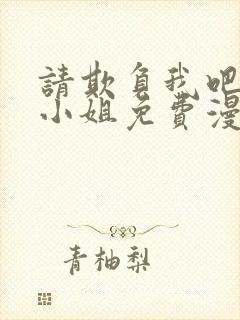 請欺負我吧
小姐免費漫
青柚梨